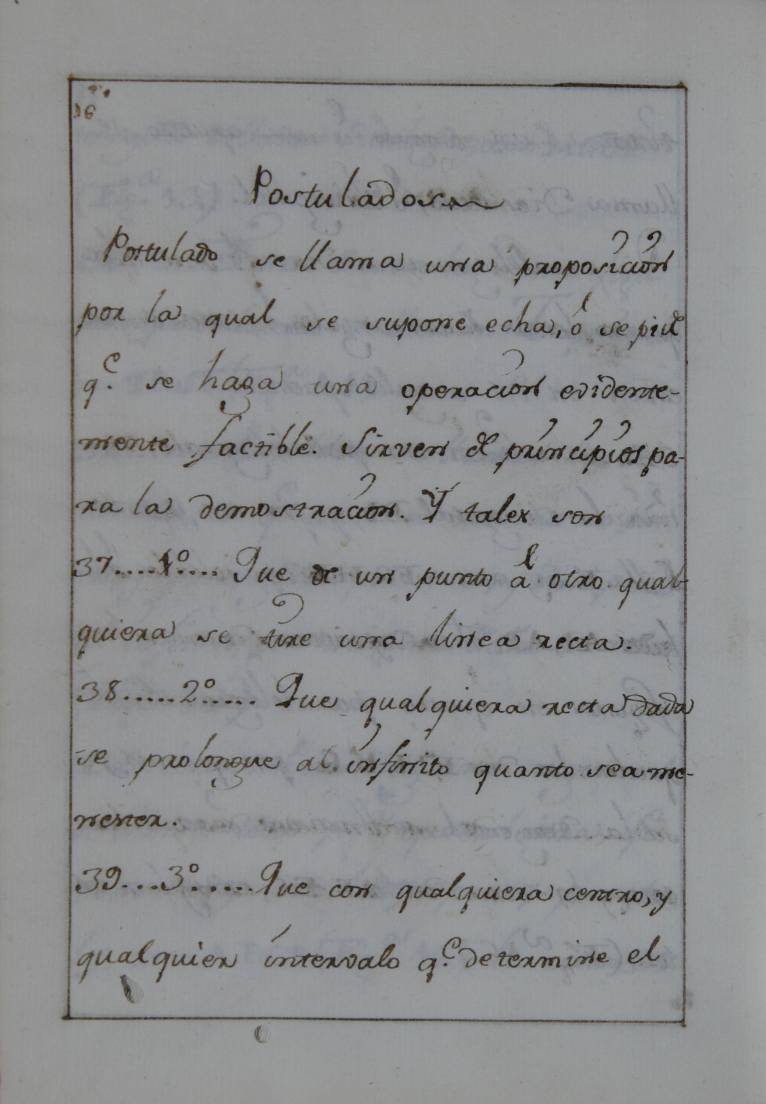 36
Postulados
Postulado se llama una proposicion
por la qual se supone echa, ó se pide
q.e se haga una operacion evidente-
mente factible. Sirven de principios pa-
ra la demostracion. Y tales son
37....1º.... Que de un punto á otro qual-
quiera se tire una linea recta.
38.....2º..... Que qualquiera recta dada
se prolongue al infinito quanto sea me-
nester.
39...3º..... Que con qualquiera centro, y
qualquier intervalo q.e determine el